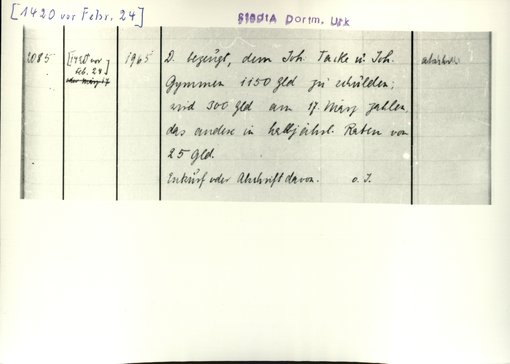 [1420 vor Febr. 24]
Stadt A Dortm. Urk
2085
[1420 vor
Feb. 24]
oder März 17
1965
D. bezeugt, dem Joh. Tacke u. Joh.
Gymmen 1150 Gld zu schulden;
wird 300 Gld am 17. März zahlen,
das andere in halbjährl. Raten von
25 Gld.
Entwurf oder Abschrift davon. o. J.